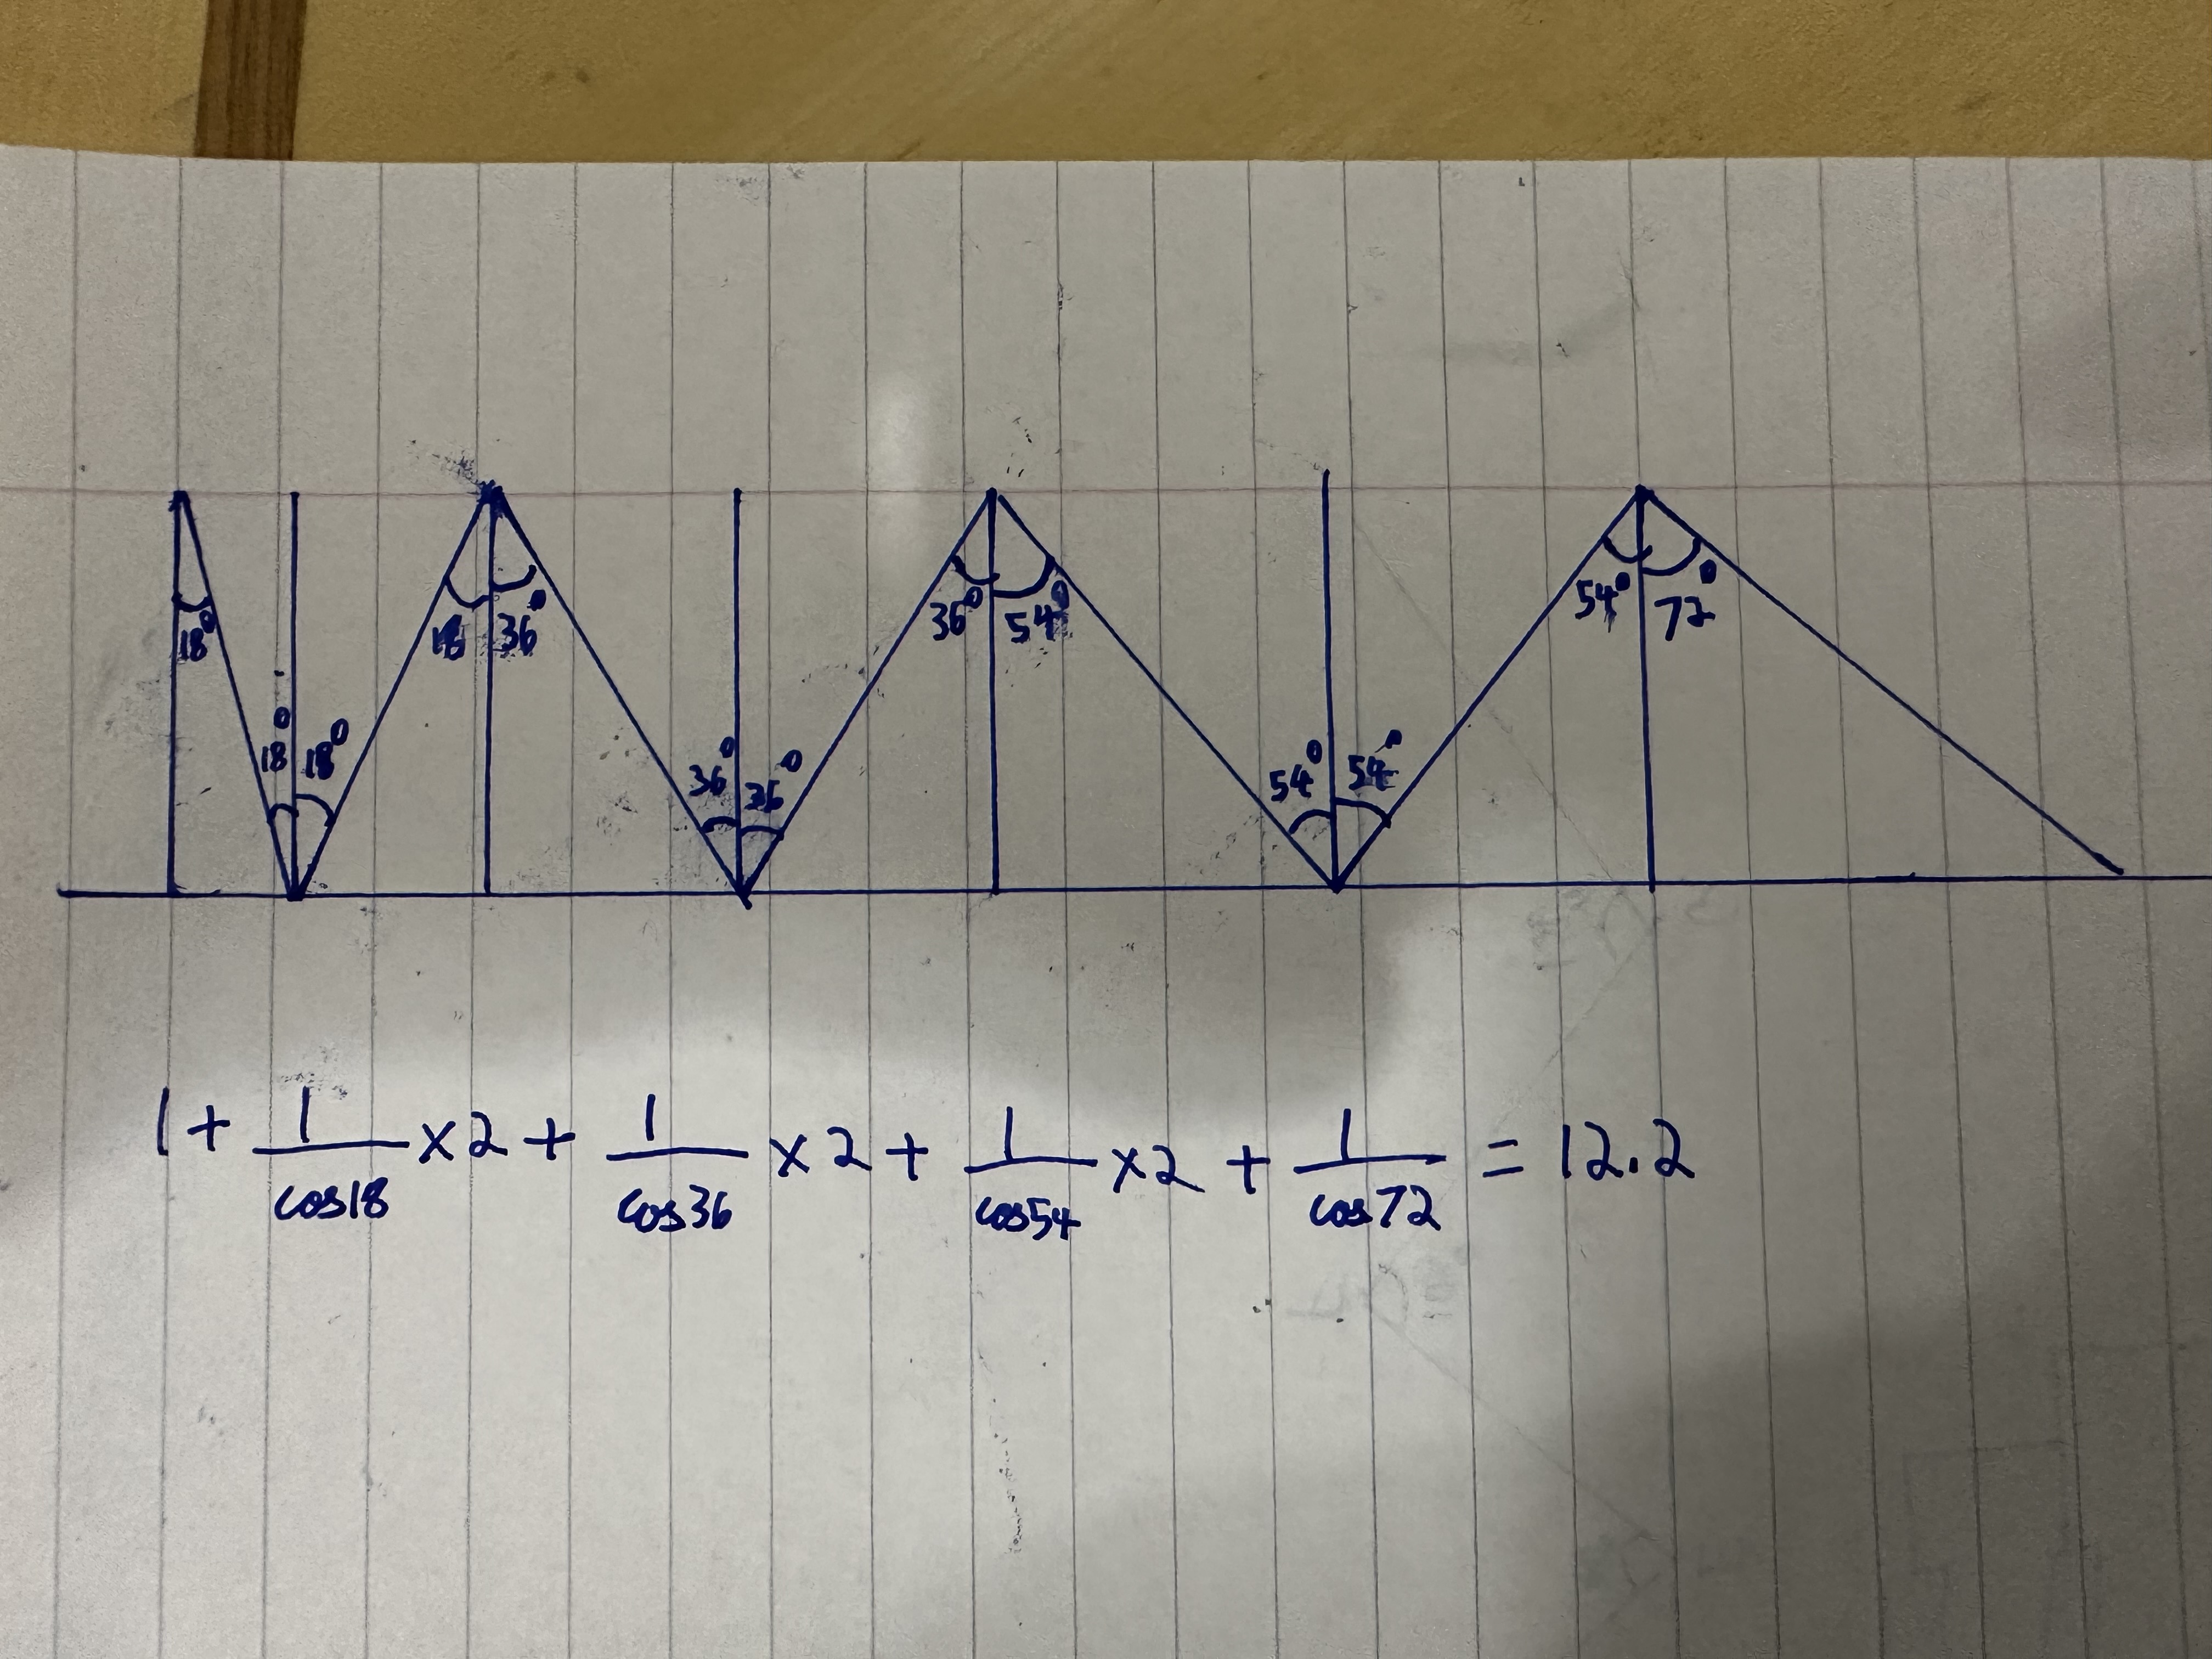 18° 18° 18° 18 36° 36° 36° 36° 54° 54° 54° 54° 72°
1 + 1/cos18 × 2 + 1/cos36 × 2 + 1/cos54 × 2 + 1/cos72 = 12.2